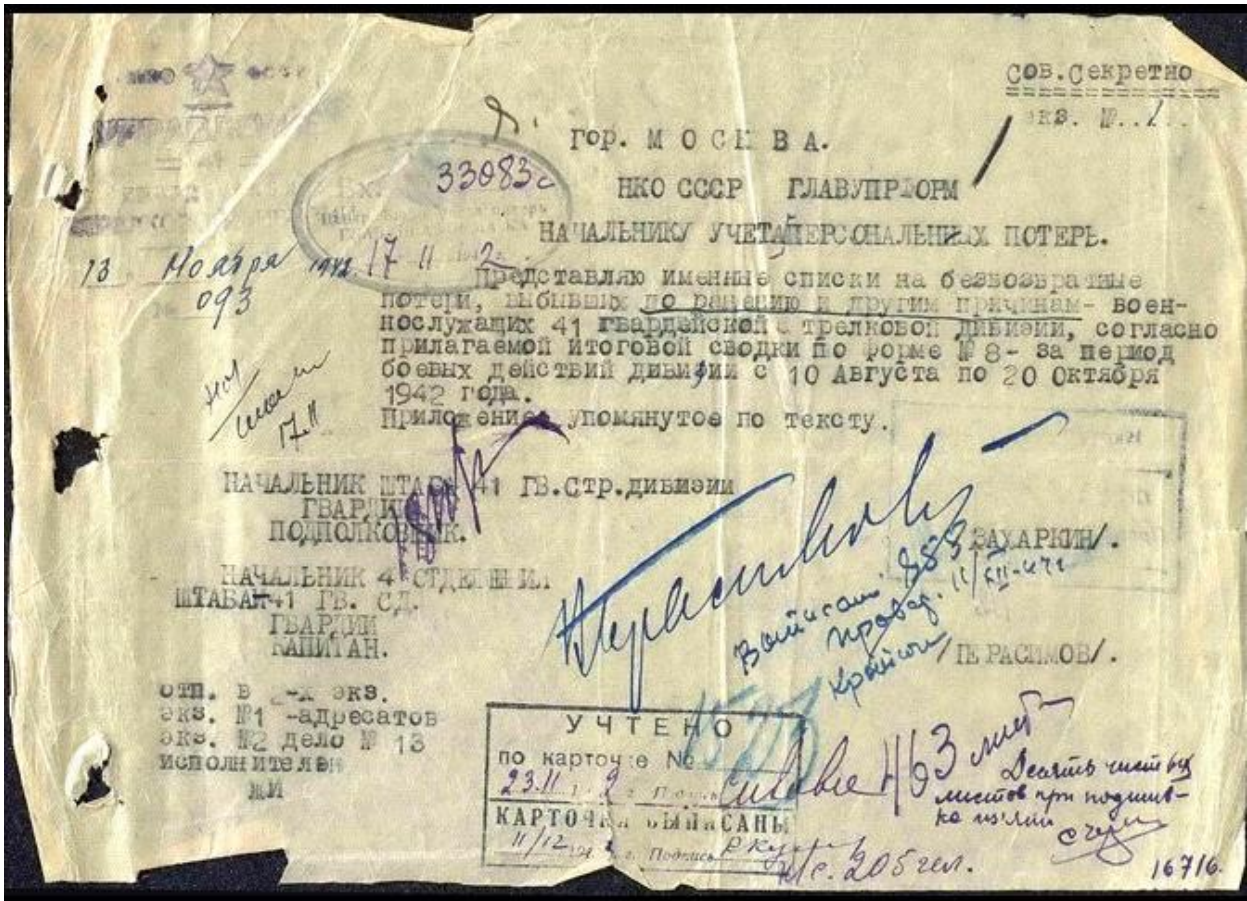 НКО СССР
УПРАВЛЕНИЕ
41
Сов.Секретно
экз. №..1..
гор. М О С К В А.
Вх. 33083с
НКО СССР ГЛАВУПРФОРМ
НАЧАЛЬНИКУ УЧЕТА ПЕРСОНАЛЬНЫХ ПОТЕРЬ.
13 Ноября 1942
17 11 2
093
Представляю именные списки на безвозвратные
потери, выбывших по ранению и другим причинам- воен-
нослужащих 41 гвардейской стрелковой дивизии, согласно
прилагаемой итоговой сводки по форме № 8- за период
боевых действий дивизии с 10 Августа по 20 Октября
1942 года.
Приложение упомянутое по тексту.
17.11
НАЧАЛЬНИК ШТАБА 41 ГВ.СТР.ДИВИЗИИ
ГВАРДИИ
ПОДПОЛКОВНИК.
/ЗАХАРКИН/.
НАЧАЛЬНИК 4 ОТДЕЛЕНИЯ
ШТАБА-41 ГВ. СД.
ГВАРДИИ
КАПИТАН.
/ГЕРАСИМОВ/.
Выписано 883
11/XII-42г
отп. в 2-х экз.
экз. №1 -адресатов
экз. №2 дело № 13
исполнителен
МИ
УЧТЕНО
по карточке №
23.11 2 г. Подпись
КАРТОЧКИ ВЫПИСАНЫ
11/12 194 г. Подпись
463 лист
Десять чистых
листов при подшив-
ке изъяли
н/с. 205 чел.
16716.